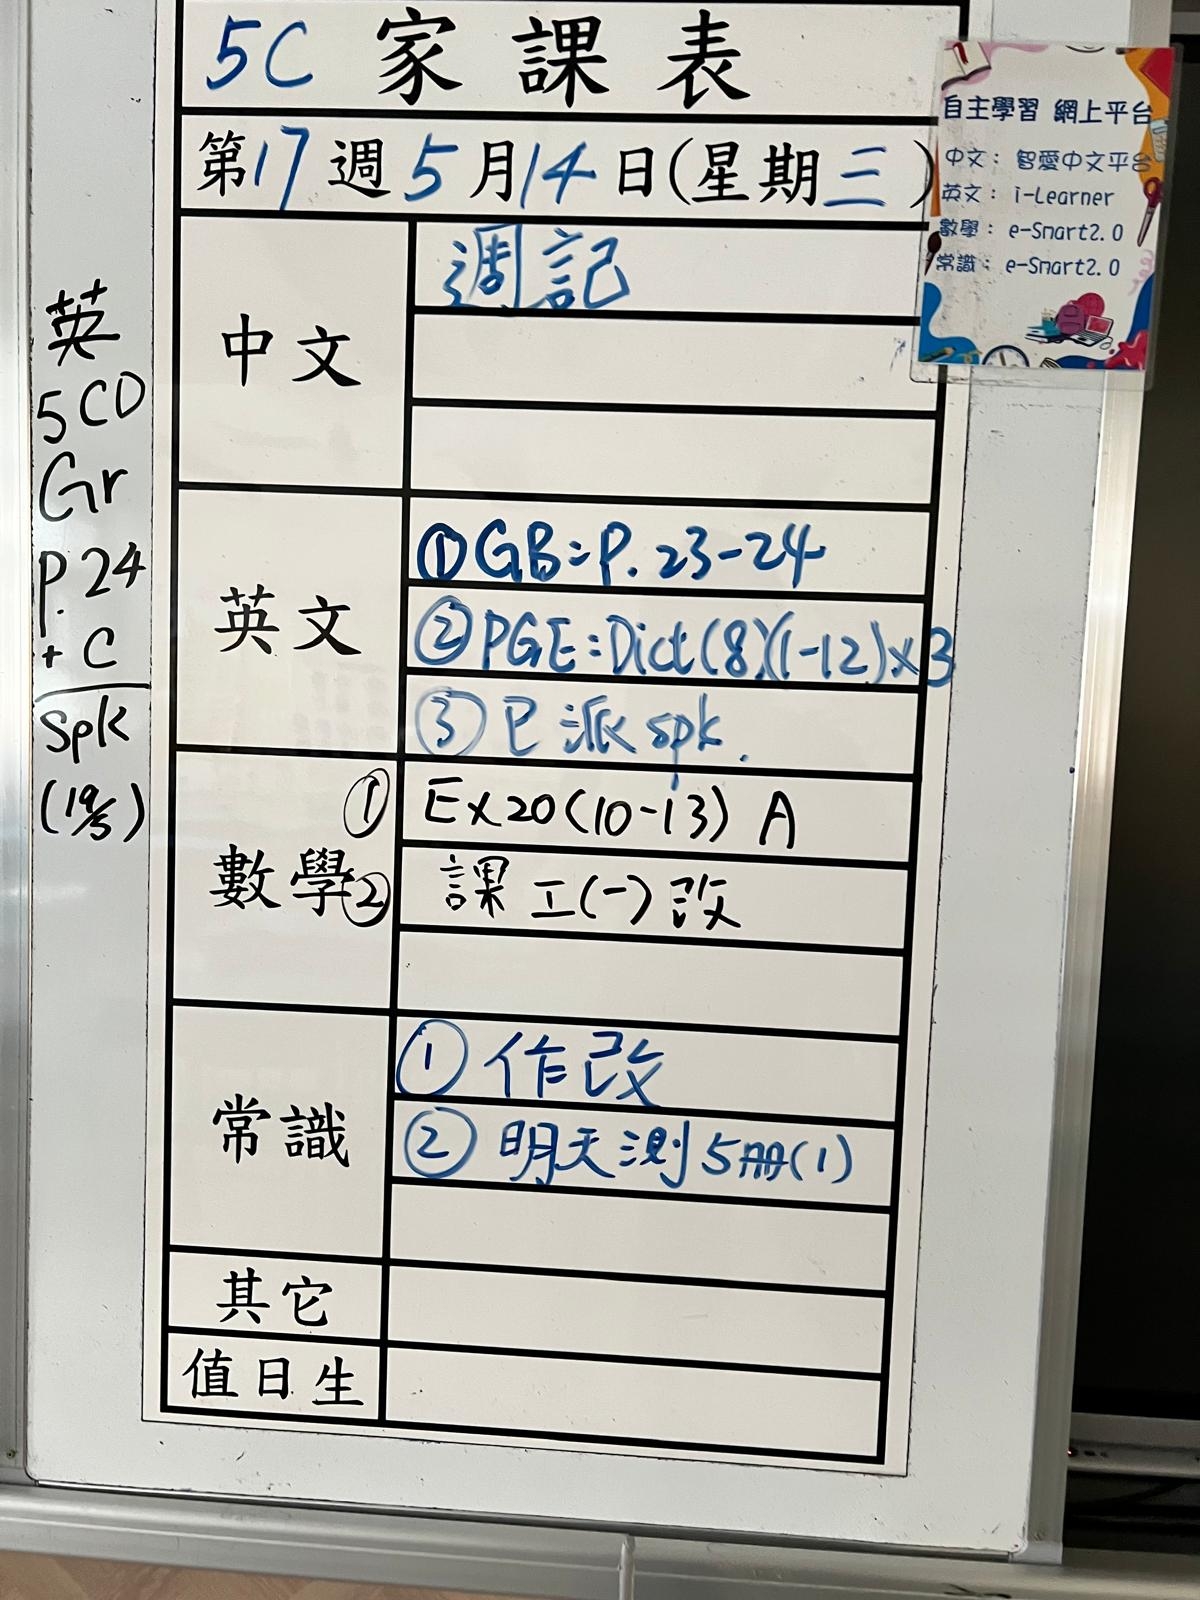 5C 家課表
第17週5月14日(星期三)
中文
週記
英文
①GB:P.23-24
②PGE:Dict(8)(1-12)x3
③已派spk.
數學
① Ex20(10-13) A
② 課工(一)改
常識
① 作改
② 明天測5冊(1)
其它
值日生
英
5CD
Gr
P.24
+ C
Spk
(19/5)
自主學習 網上平台
中文: 智愛中文平台
英文: i-Learner
數學: e-Smart2.0
常識: e-Smart2.0